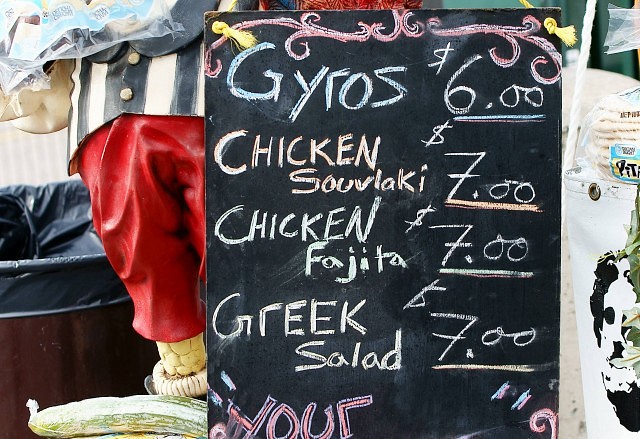 Gyros $6.00
CHICKEN $7.00
Souvlaki
CHICKEN $7.00
Fajita
GrEEK $7.00
Salad
"YOUr "
PITA